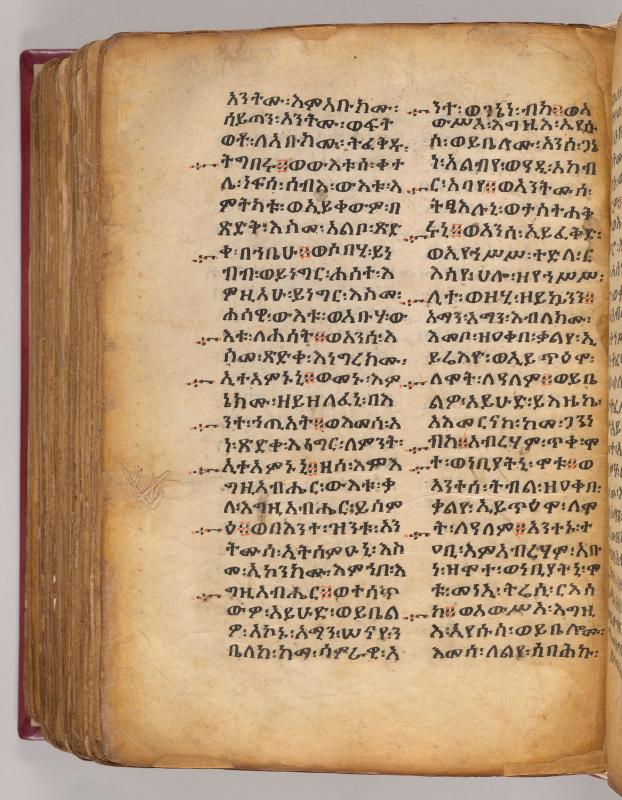 አንትሙ፡እምአቡክሙ፡
ሰይጣን፡አንትሙ፡ወፍት
ወቶ፡ለአቡክሙ፡ትፈቅዱ፡
ትግበሩ፨ወውእቱሰ፡ቀተ
ሌ፡ነፍሰ፡ሰብእ፡ውእቱ፡እ
ምትካቱ፡ወኢይቀውም፡በ
ጽድቅ፡እስመ፡አልቦ፡ጽድ
ቀ፡በኀቤሁ፨ወሶበሂ፡ይነ
ብብ፡ወይነግር፡ሐሰተ፡እ
ምዚአሁ፡ይነግር፡እስመ፡
ሐሳዊ፡ውእቱ፡ወአቡሃ፡ው
እቱ፡ለሐሰት፨ወአንሰ፡እ
ስመ፡ጽድቀ፡እነግረክሙ፡
ኢተአምኑኒ፨ወመኑ፡እም
ኔክሙ፡ዘይዘልፈኒ፡በእ
ንተ፡ኀጢአት፨ወእመሰ፡አ
ነ፡ጽድቀ፡እነግር፡ለምንት፡
ኢተአምኑኒ፨ዘሰ፡እምእ
ግዚአብሔር፡ውእቱ፡ቃ
ለ፡እግዚአብሔር፡ይሰም
ዕ፨ወበእንተ፡ዝንቱ፡አን
ትሙሰ፡ኢትሰምዑኒ፡እስ
መ፡ኢኮንክሙ፡እምኀበ፡እ
ግዚአብሔር፨ወተሰጥ
ውዎ፡አይሁድ፡ወይቤል
ዎ፡አኮኑ፡አማን፡ሠናየ፡ን
ቤለከ፡ከመ፡ሳምራዊ፡አ
ንተ፡ወጋኔን፡ብከ፨ወአ
ውሥአ፡እግዚእ፡ኢየሱ
ስ፡ወይቤሎሙ፡አንሰ፡ጋኔ
ን፡አልብየ፡ወዳዲ፡አከብ
ር፡አባየ፨ወአንትሙሰ፡
ትጼእሉኒ፡ወታስተሐቅ
ሩኒ፨ወአንሰ፡ኢይፈቅድ፡
ወኢየኀሥሥ፡ተድላ፡ር
እስየ፡ሀሎ፡ዘየኀሥሥ፡
ሊተ፡ወዘሂ፡ዘይኴንን፨
አማን፡አማን፡እብለክሙ፡
እመቦ፡ዘዐቀበ፡ቃልየ፡ኢ
ይሬእዮ፡ወኢይጥዕሞ፡
ለሞት፡ለዓለም፨ወይቤ
ልዎ፡አይሁድ፡ይእዜኬ፡
አእመርናከ፡ከመ፡ጋኔን
ብከ፨አብርሃም፡ጥቀ፡ሞ
ተ፡ወነቢያትኒ፡ሞቱ፨ወ
አንተሰ፡ትብል፡ዘዐቀበ፡
ቃልየ፡ኢይጥዕሞ፡ለሞ
ት፡ለዓለም፨አንተኑ፡ተ
ዐቢ፡እምአብርሃም፡አቡ
ነ፡ዘሞተ፡ወነቢያትኒ፡ሞ
ቱ፡መነኢ፡ትሬሲ፡ርእሰ
ከ፨ወአውሥአ፡እግዚ
እ፡ኢየሱስ፡ወይቤሎሙ፡
እመሰ፡ለልየ፡ሰባሕኩ፡